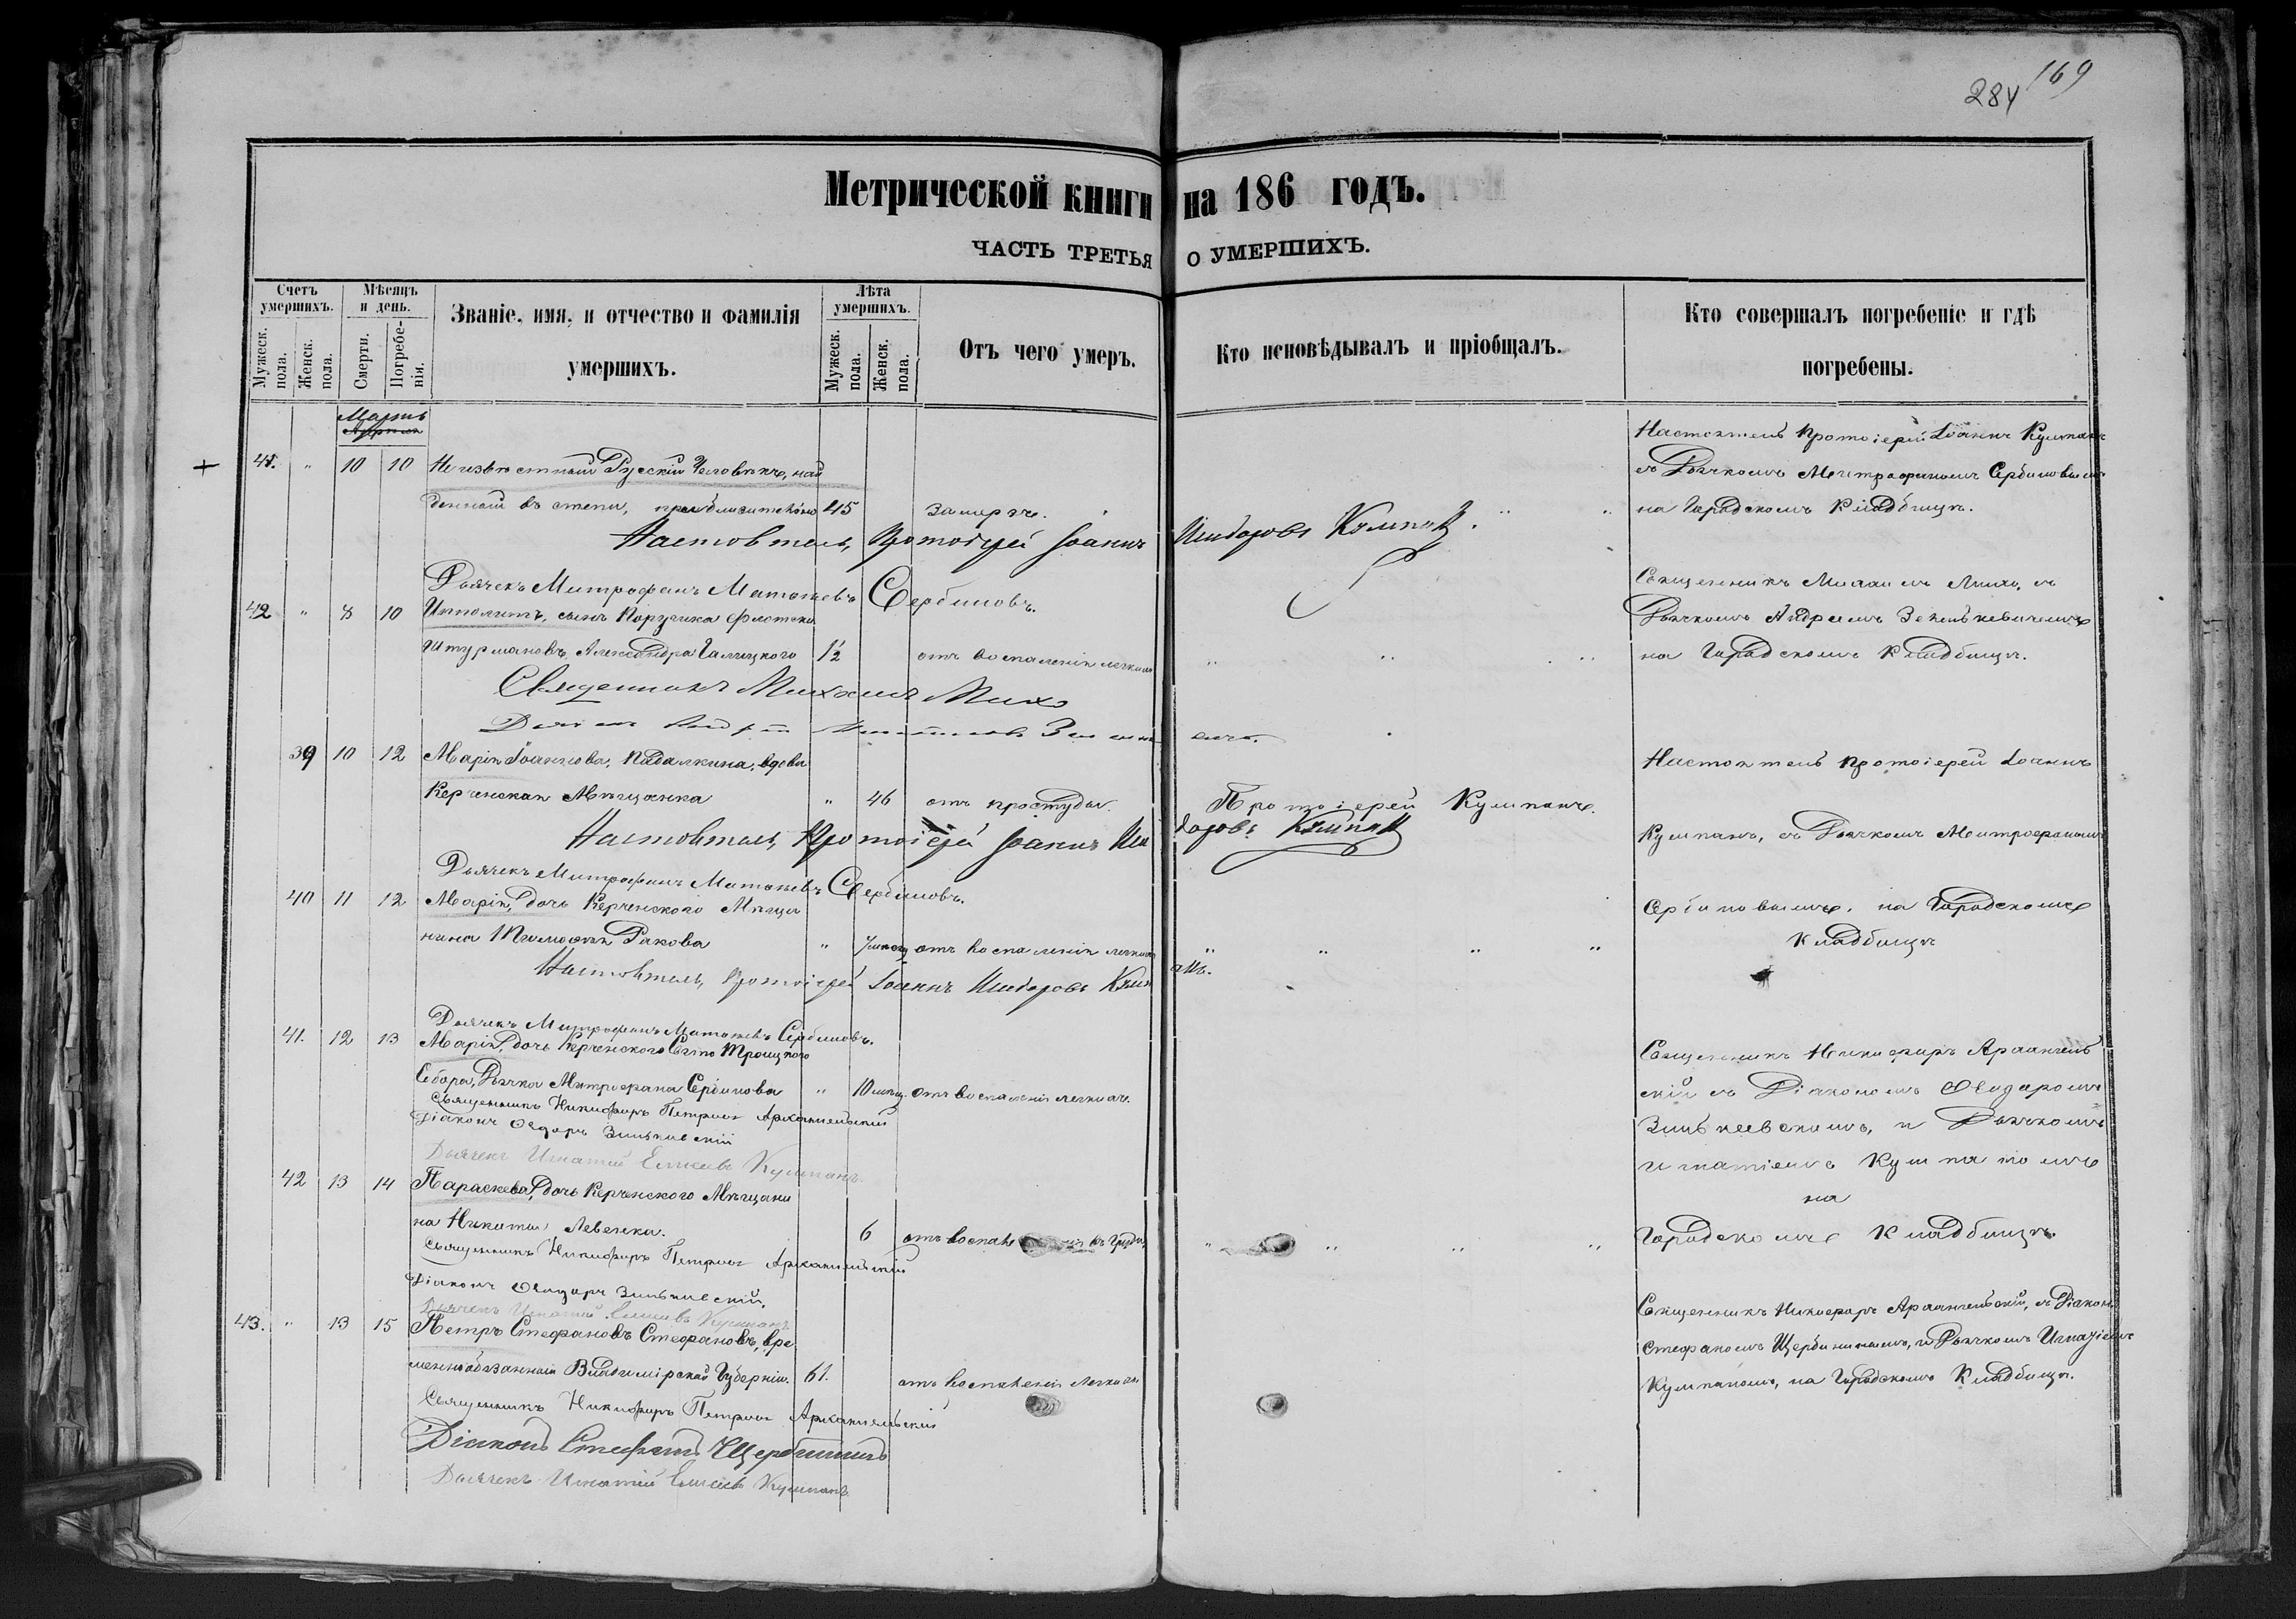 284 169
Метрической книги на 186 годъ.
ЧАСТЬ ТРЕТЬЯ О УМЕРШИХЪ.
Счетъ умершихъ.
Мужеск. пола.
Женск. пола.
Мѣсяцъ и день.
Смерти.
Погребенія.
Званіе, имя, и отчество и фамилія
умершихъ.
Лѣта умершихъ.
Мужеск. пола.
Женск. пола.
Отъ чего умеръ.
Кто исповѣдывалъ и пріобщалъ.
Кто совершалъ погребеніе и гдѣ
погребены.
Мартъ
41. " 10 10 Неизвѣстный Русскій Человѣкъ, най
денный въ степи, приблизительно 45 замерзъ.
Настоятель Протоіерей Іоаннъ Кумпанъ
съ Дьячкомъ Митрофаномъ Сербиновымъ
на Городскомъ Кладбищѣ.
Настоятель, Протоіерей Іоаннъ Исидоровъ Кумпанъ
Дьячекъ Митрофанъ Матѳеевъ Сербиновъ.
42 " 8 10 Ипполитъ, сынъ Поручика флотских
Штурмановъ, Александра Галицкого 1/2 отъ воспаленія легкихъ
Священникъ Михаилъ Михо, съ
Дьячкомъ Андреемъ Зенькевичемъ
на Городскомъ Кладбищѣ.
Священникъ Михаилъ Михо
39 10 12 Марія Іоаннова, Падалкина, вдова
Керченская Мѣщанка " 46 отъ простуды. Протоіерей Кумпанъ.
Настоятель Протоіерей Іоаннъ
Кумпанъ, съ Дьячкомъ Митрофаномъ
Сербиновымъ, на Городскомъ
Кладбищѣ
Настоятель, Протоіерей Іоаннъ Исидоровъ Кумпанъ
Дьячекъ Митрофанъ Матѳеевъ Сербиновъ.
40 11 12 Марія, дочь Керченского Мѣща
нина Тимоѳея Ракова " отъ воспаленія легкихъ
Настоятель, Протоіерей Іоаннъ Исидоровъ Кумпанъ.
Дьячекъ Митрофанъ Матѳеевъ Сербиновъ.
41. 12 13 Марія, дочь Керченского Свято Троицкого
Собора, Дьячка Митрофана Сербинова " 10 мѣсяц. отъ воспаленія легкихъ.
Священникъ Никифоръ Архангель
скій съ Діакономъ Ѳеодоромъ
Зинькевскимъ, и Дьячкомъ
Игнатіемъ Кумпаномъ
на
Городскомъ Кладбищѣ
Священникъ Никифоръ Петровъ Архангельскій
Діаконъ Ѳедоръ Зинькевскій
Дьячекъ Игнатій Елисеевъ Кумпанъ.
42 13 14 Параскева, дочь Керченского Мѣщани
на Никиты Левенка. 6
Священникъ Никифоръ Петровъ Архангельскій
Діаконъ Ѳеодоръ Зинькевскій,
Дьячекъ Игнатій Елисеевъ Кумпанъ.
43. " 13 15 Петръ Стефановъ Стефановъ, вре
меннообязанный Владимірской Губерніи. 61. отъ воспаленія легкихъ
Священникъ Никифоръ Архангельскій, съ Діакон
Стефаномъ Щербининымъ, и Дьячкомъ Игнатіемъ
Кумпаномъ, на Городскомъ Кладбищѣ.
Священникъ Никифоръ Петровъ Архангельскій
Діаконъ Стефанъ Щербининъ
Дьячекъ Игнатій Елисеевъ Кумпанъ